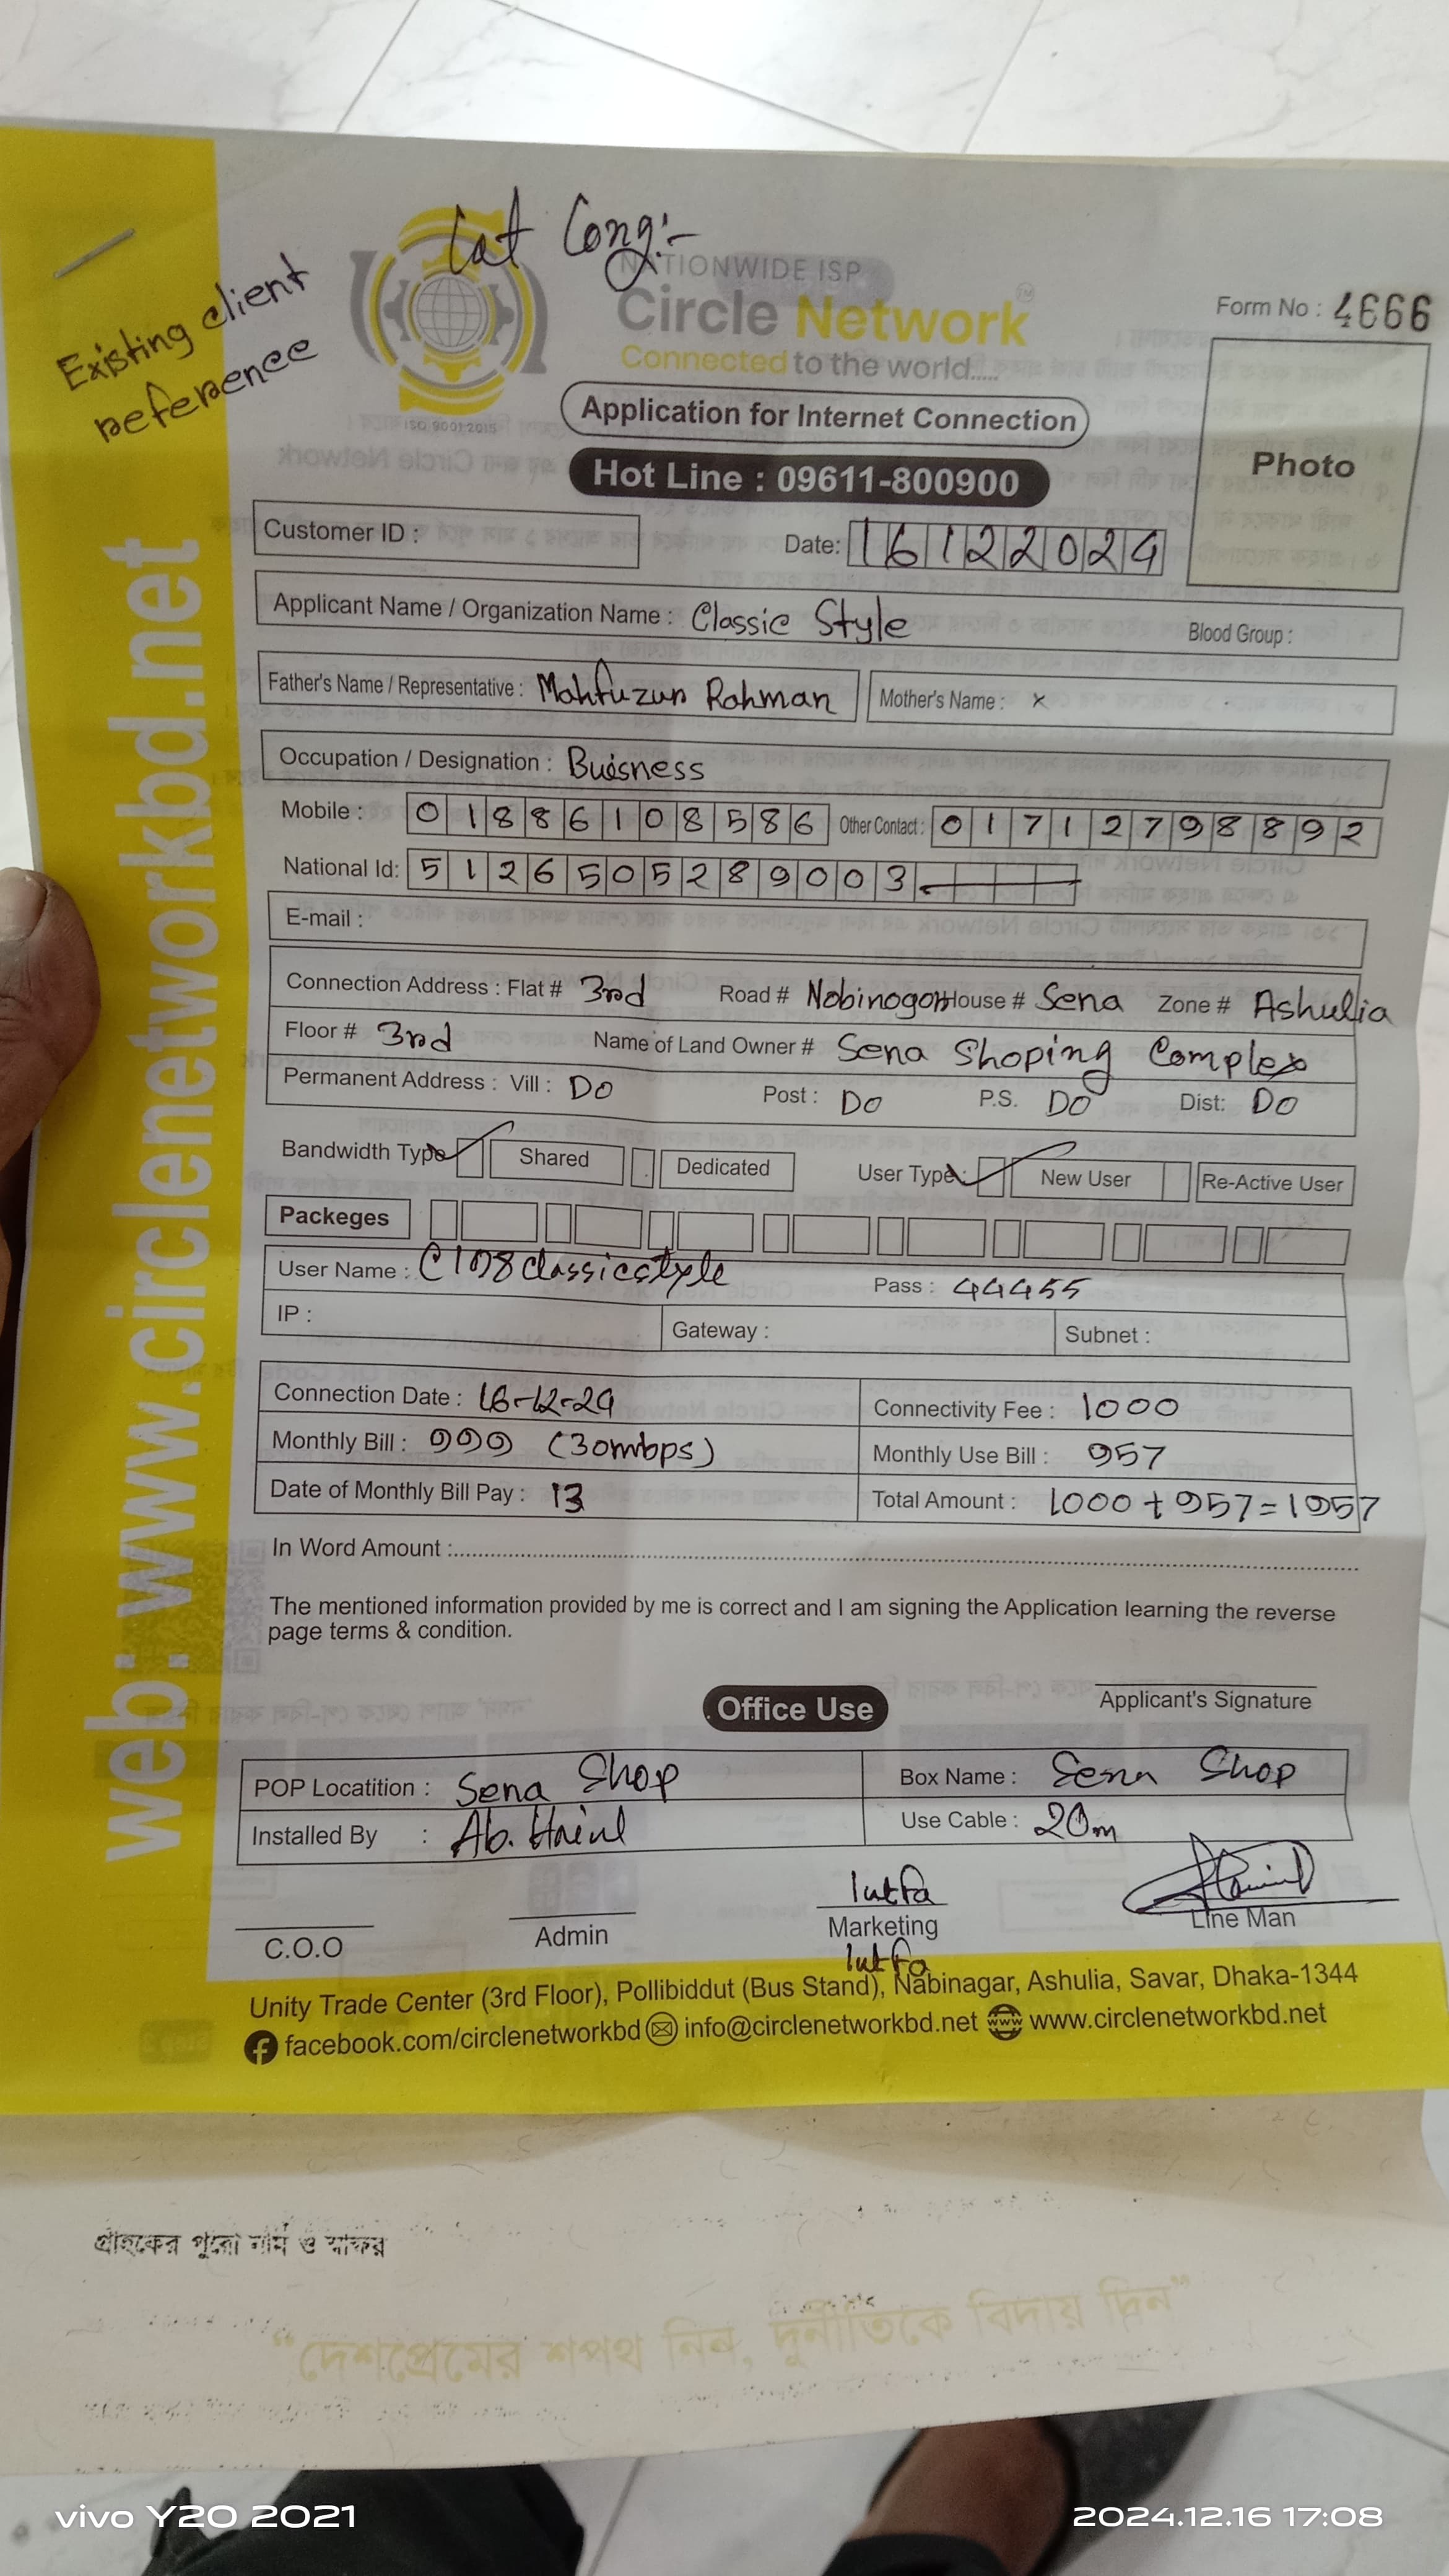 Lat Long:-
Existing client
reference
NATIONWIDE ISP
Circle Network™
Connected to the world.....
ISO 9001:2015
Form No : 4666
Application for Internet Connection
Photo
Hot Line : 09611-800900
Customer ID :
Date: 16122024
Applicant Name / Organization Name : Classic Style Blood Group :
Father's Name / Representative : Mahfuzur Rahman Mother's Name : x
Occupation / Designation : Buisness
Mobile : 01886108586 Other Contact : 01712798892
National Id: 5126505289003
E-mail :
Connection Address : Flat # 3rd Road # Nobinogor House # Sena Zone # Ashulia
Floor # 3rd Name of Land Owner # Sena Shoping Complex
Permanent Address : Vill : DO Post : DO P.S. DO Dist: DO
Bandwidth Type Shared Dedicated User Type: New User Re-Active User
Packeges
User Name : Pass : 44455
IP : Gateway : Subnet :
Connection Date : 16-12-24 Connectivity Fee : 1000
Monthly Bill : 999 (30mbps) Monthly Use Bill : 957
Date of Monthly Bill Pay : 13 Total Amount : 1000 + 957 = 1957
In Word Amount :
The mentioned information provided by me is correct and I am signing the Application learning the reverse
page terms & condition.
Applicant's Signature
Office Use
POP Locatition : Sena Shop Box Name : Sena Shop
Installed By : Ab. Use Cable : 20m
lutfa
C.O.O Admin Marketing Line Man
lutfa
Unity Trade Center (3rd Floor), Pollibiddut (Bus Stand), Nabinagar, Ashulia, Savar, Dhaka-1344
facebook.com/circlenetworkbd info@circlenetworkbd.net www www.circlenetworkbd.net
web: www.circlenetworkbd.net
গ্রাহকের পুরো নাম ও স্বাক্ষর
“দেশপ্রেমের শপথ নিন, দুর্নীতিকে বিদায় দিন”
vivo Y20 2021
2024.12.16 17:08